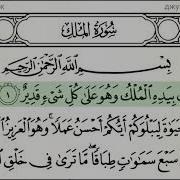 к джу
سُورَةُ المُلْكِ
بِسْمِ اللَّهِ الرَّحْمَٰنِ الرَّحِيمِ
بِيَدِهِ الْمُلْكُ وَهُوَ عَلَىٰ كُلِّ شَىْءٍ قَدِيرٌ ١
حَيَوٰةَ لِيَبْلُوَكُمْ أَيُّكُمْ أَحْسَنُ عَمَلًا ۚ وَهُوَ الْعَزِيزُ
سَبْعَ سَمَٰوَٰتٍ طِبَاقًا ۖ مَّا تَرَىٰ فِى خَلْقِ